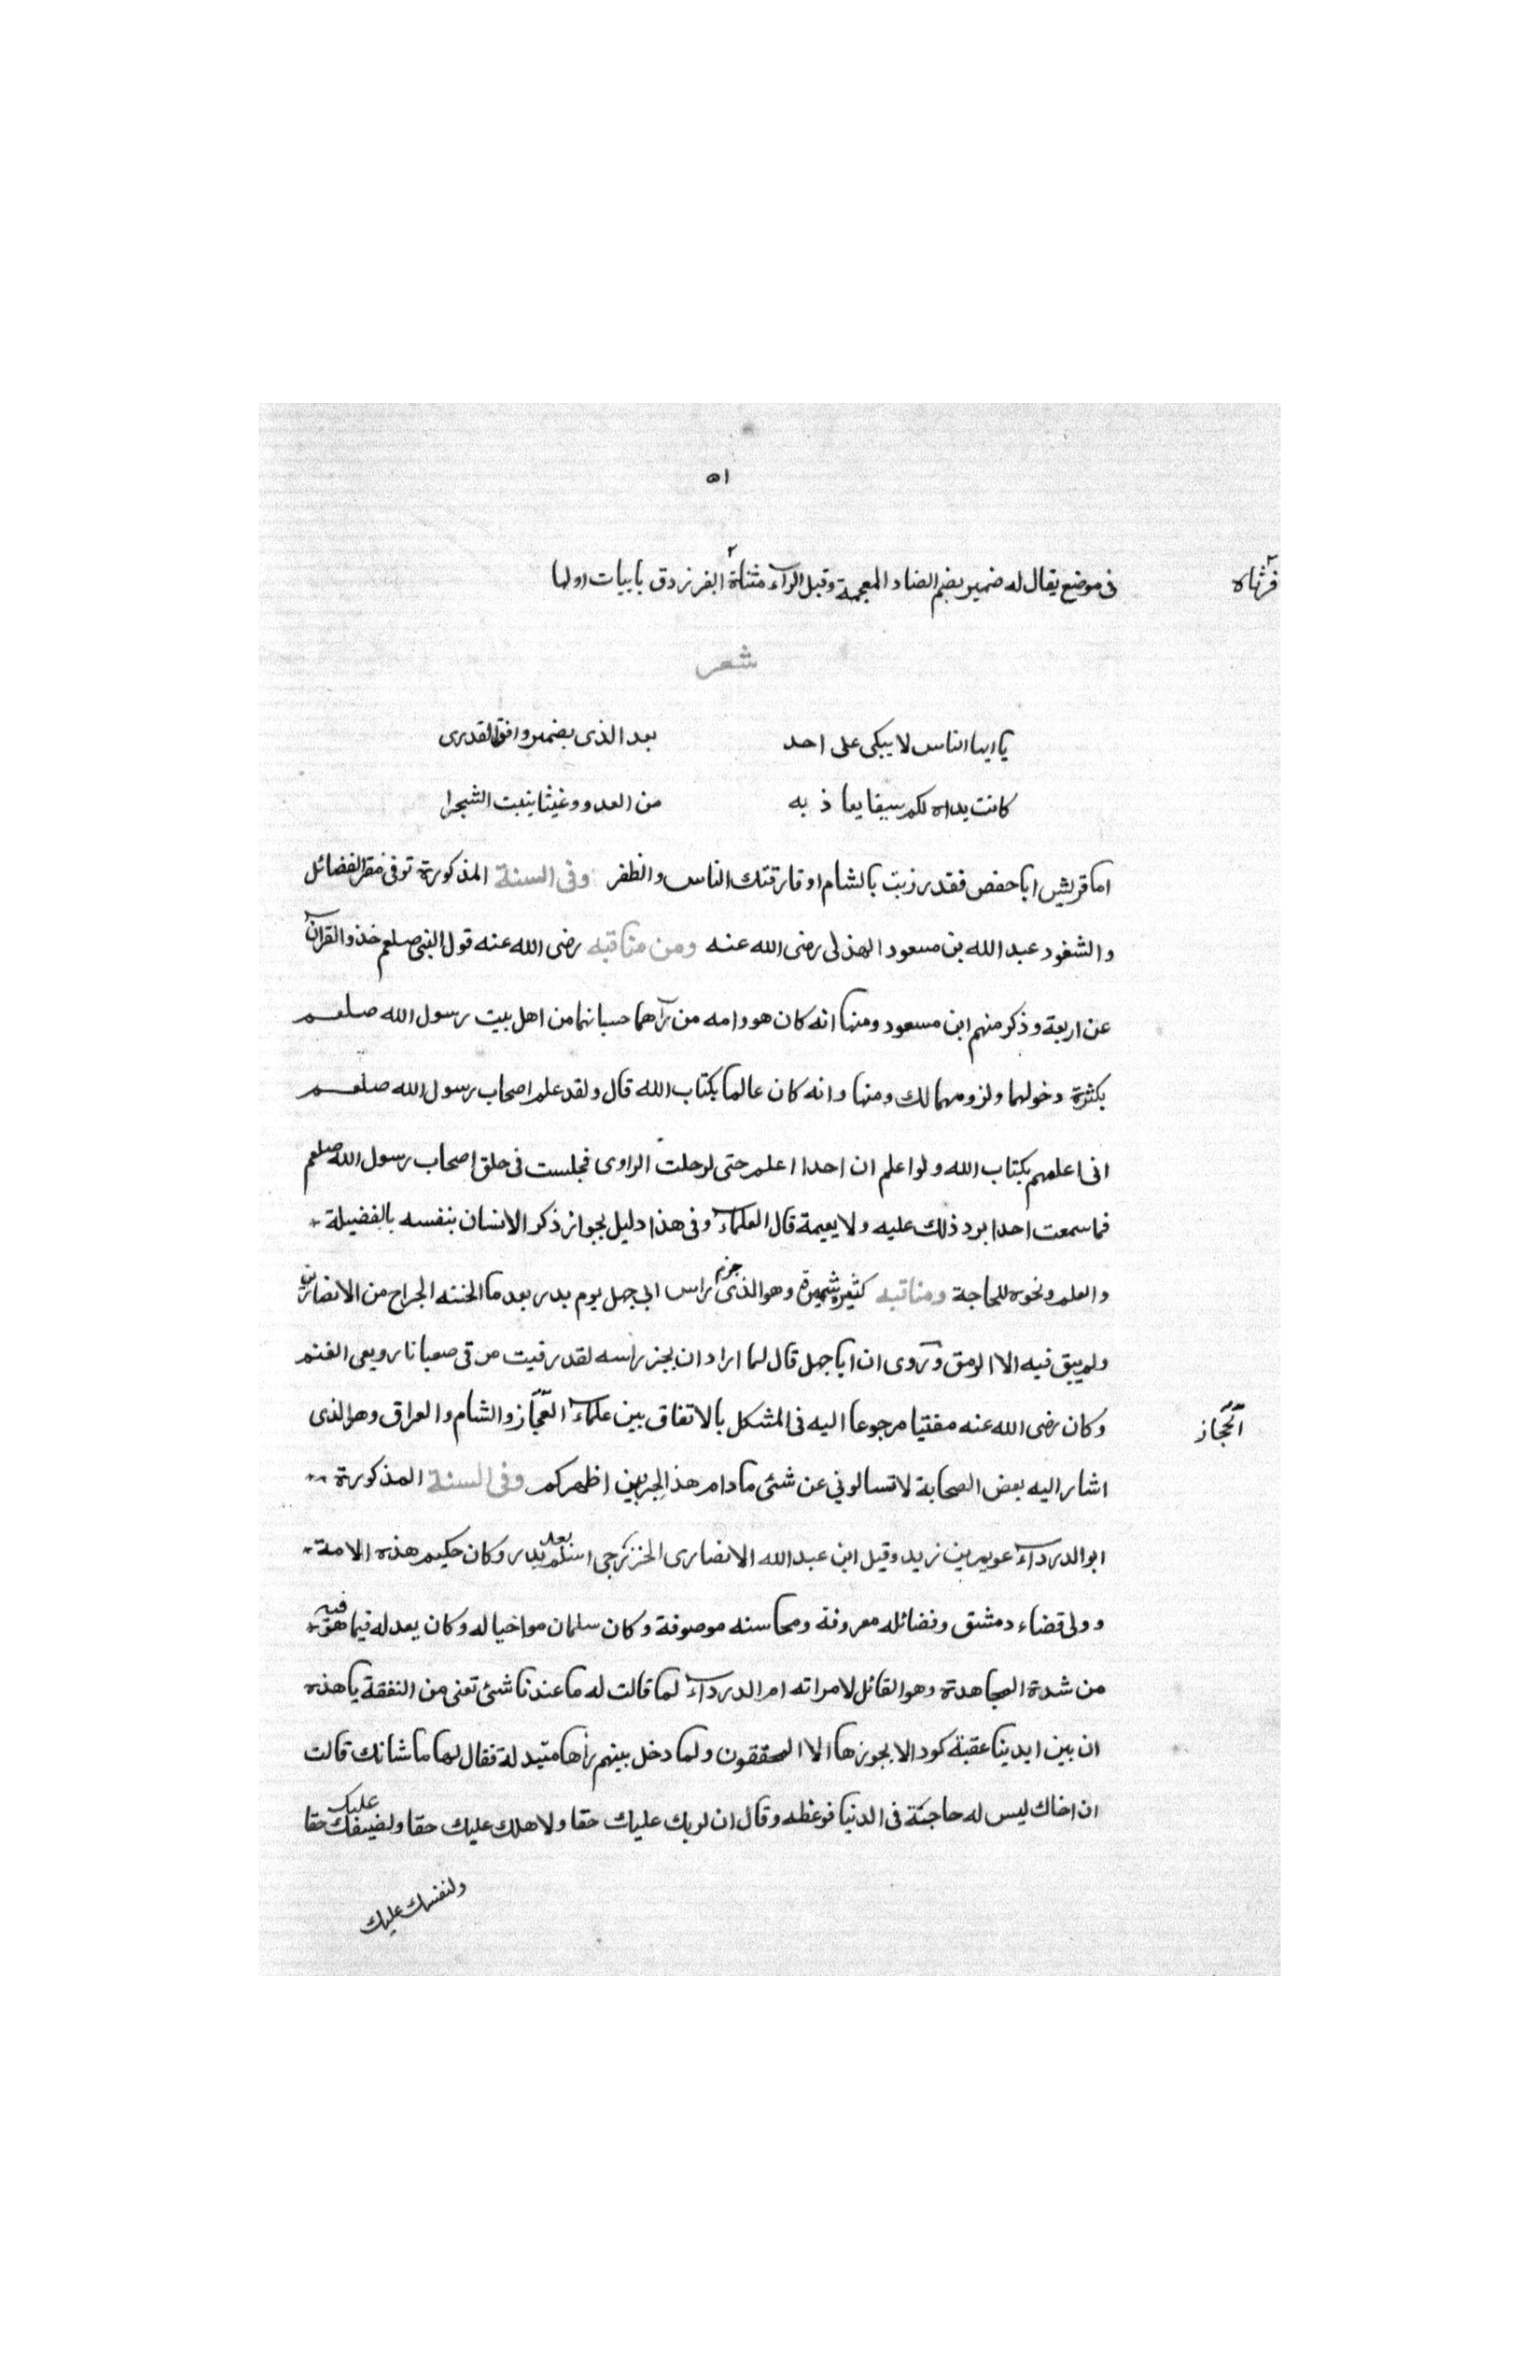 ٥١
فى موضع يقال له ضمير بضم الضاد المعجمة وقبل الرآء مثناة ٢ الفرزدق بابيات اولها
فرثاه
شعر
يا ايها الناس لا يبكى على احد بعد الذى بضمير وافق القدرى
كانت يداه لكم سيفا يعاذ به من العدو وغيثا ينبت الشجرا
اما قريش ابا حفص فقد رزيت بالشام او فارقتك الناس والظفر وفى السنة المذكورة توفى مقر الفضائل
والشغور عبد الله بن مسعود الهذلى رضى الله عنه ومن مناقبه رضى الله عنه قول النبى صلعم خذو القرآن
عن اربعة وذكر منهم ابن مسعود ومنها انه كان هو وامه من رآهما حسبانهما من اهل بيت رسول الله صلعم
بكثرة دخولهما ولزومهما لك ومنها وانه كان عالما بكتاب الله قال ولقد علم اصحاب رسول الله صلعم
انى اعلمهم بكتاب الله ولو اعلم ان احدا اعلم حتى لرحلت الراوى فجلست فى حلق اصحاب رسول الله صلعم
فما سمعت احدا يرد ذلك عليه ولا يعيمة قال العلمآء وفى هذا دليل بجواز ذكر الانسان بنفسه بالفضيلة
والعلم ونحوه للحاجة ومناقبه كثيرة شهيرة وهو الذى جزم راس ابى جهل يوم بدر بعد ما اثخنته الجراح من الانصارين
ولم يبق فيه الا الرمق وروى ان ابا جهل قال لما اراد ان يجز راسه لقد رقيت مرقى صعبا نا رويعى الغنم
وكان رضى الله عنه مفتيا مرجوعا اليه فى المشكل بالاتفاق بين علمآء العجاز والشام والعراق وهو الذى
الحجاز
اشار اليه بعض الصحابة لا تسالونى عن شئى ما دام هذ الحبر بين اظهركم وفى السنة المذكورة
ابو الدردآء عويمر بن زيد وقيل ابن عبد الله الانصارى الخزرجى اسلم بعد بدر وكان حكيم هذه الامة
وولى قضاء دمشق وفضائله معروفة ومحاسنه موصوفة وكان سلمان مواخيا له وكان يعدله فيما هو فيه
من شدة المجاهدة وهو القائل لامراته ام الدردآء لما قالت له ما عندنا شئ تعنى من النفقة يا هذه
ان بين ايدينا عقبة كودا لا يجوزها الا المحققون ولما دخل بينهم رأها متبدلة فقال لها ما شانك قالت
ان اخاك ليس له حاجة فى الدنيا فوعظه وقال ان لربك عليك حقا ولاهلك عليك حقا ولضيفك عليك حقا
ولنفسك عليك